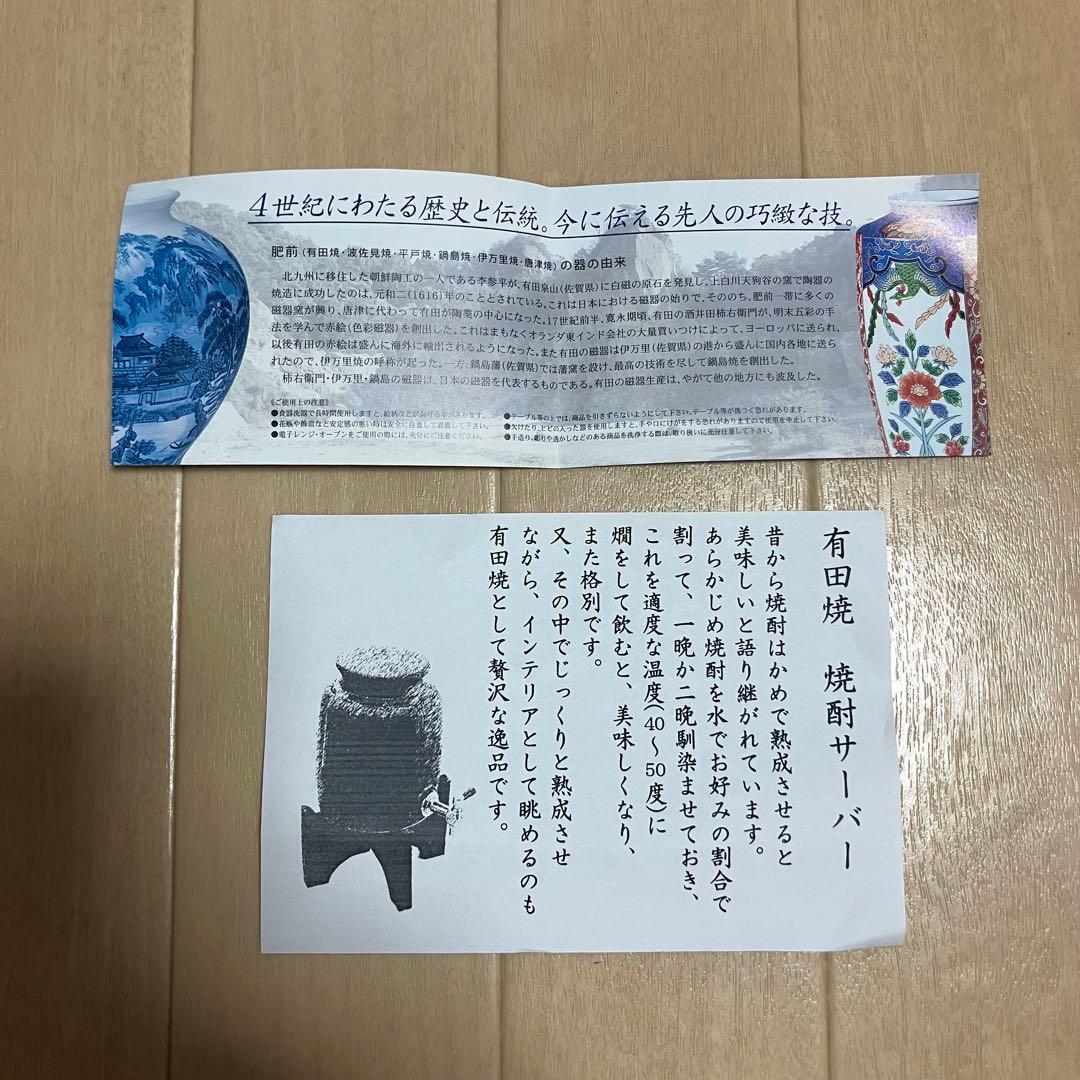 4世紀にわたる歴史と伝統。今に伝える先人の巧緻な技。
肥前(有田焼・波佐見焼・平戸焼・鍋島焼・伊万里焼・唐津焼)の器の由来
北九州に移住した朝鮮陶工の一人である李参平が、有田泉山(佐賀県)に白磁の原石を発見し、上白川天狗谷の窯で陶器の
焼造に成功したのは、元和二(1616)年のこととされている。これは日本における磁器の始りで、そののち、肥前一帯に多くの
磁器窯が興り、唐津に代わって有田が陶業の中心になった。17世紀前半、寛永期頃、有田の酒井田柿右衛門が、明末五彩の手
法を学んで赤絵(色彩磁器)を創出した。これはまもなくオランダ東インド会社の大量買いつけによって、ヨーロッパに送られ、
以後有田の赤絵は盛んに海外に輸出されるようになった。また有田の磁器は伊万里(佐賀県)の港から盛んに国内各地に送ら
れたので、伊万里焼の呼称が起った。一方、鍋島藩(佐賀県)では藩窯を設け、最高の技術を尽して鍋島焼を創出した。
柿右衛門・伊万里・鍋島の磁器は、日本の磁器を代表するものである。有田の磁器生産は、やがて他の地方にも波及した。
《ご使用上の注意》
●食器洗器で長時間使用しますと、絵柄などが剥げる
●花瓶や飾皿など安定感の悪い時は安全に注意して設置して下さい。
●電子レンジ・オーブンをご使用の際には、充分にご注意ください。
●テーブル等の上では、商品を引きずらないようにして下さい。テーブル等が傷つく恐れがあります。
●欠けたり、ヒビの入った器を使用しますと、手や口にけがをする恐れがありますので使用を中止して下さい。
●手造り、彫りや透かしなどのある商品を洗浄する際は、取り扱いに充分注意して下さい。
有田焼 焼酎サーバー
昔から焼酎はかめで熟成させると
美味しいと語り継がれています。
あらかじめ焼酎を水でお好みの割合で
割って、一晩か二晩馴染ませておき、
これを適度な温度(40～50度)に
燗をして飲むと、美味しくなり、
また格別です。
又、その中でじっくりと熟成させ
ながら、インテリアとして眺めるのも
有田焼として贅沢な逸品です。